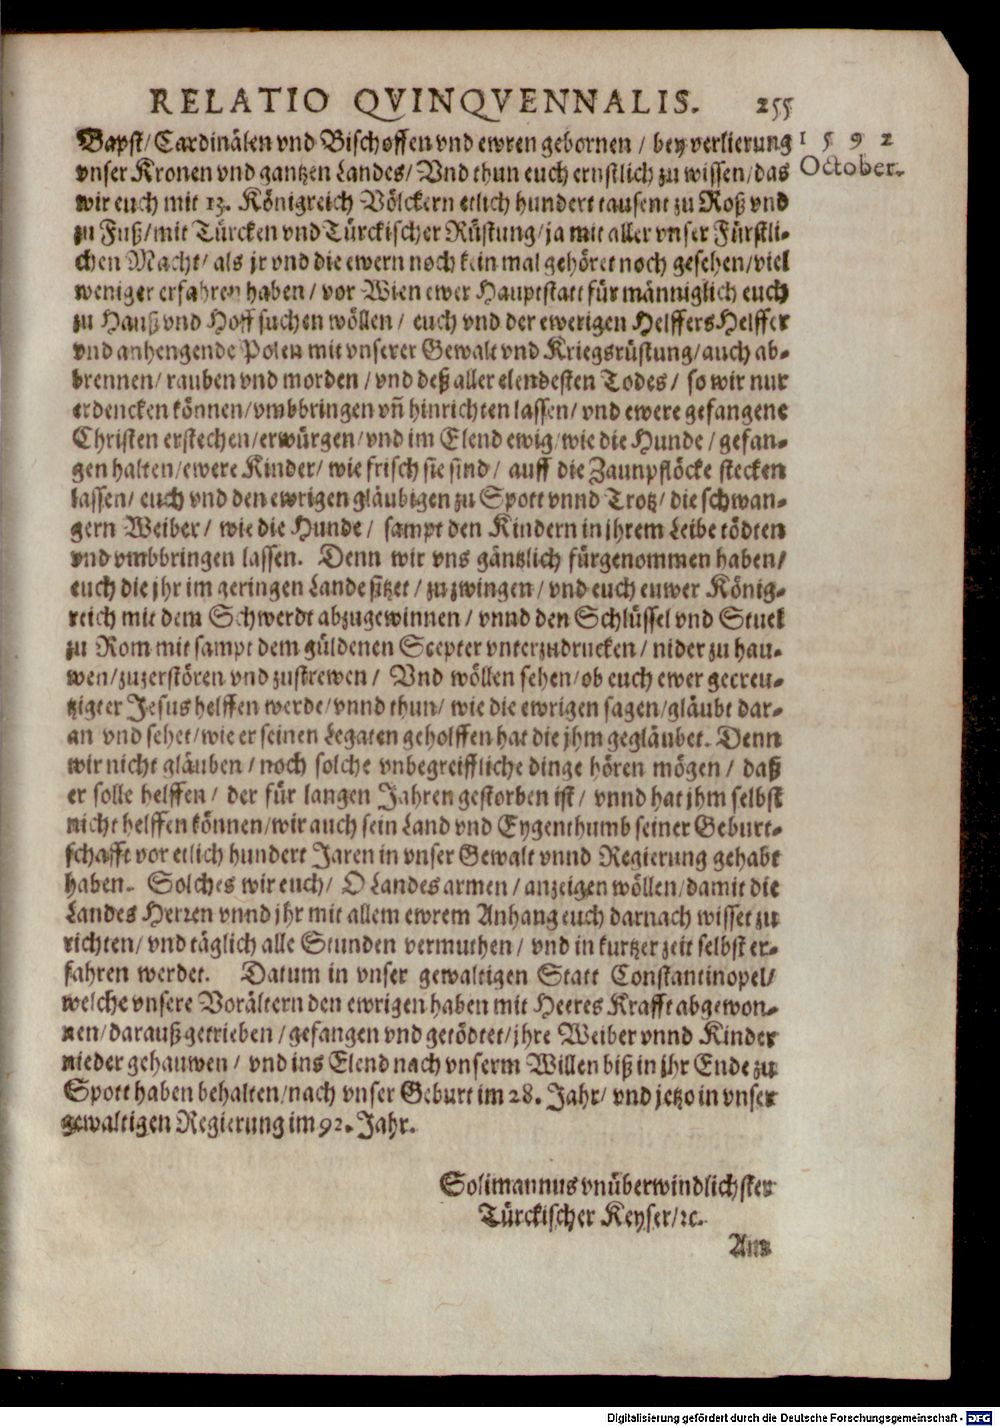 RELATIO QVINQVENNALIS. 255
1592
October.
Bapst/Cardinälen vnd Bischoffen vnd ewren gebornen / bey verlierung
vnser Kronen vnd gantzen Landes/ Vnd thun euch ernstlich zu wissen/das
wir euch mit 13. Königreich Völckern etlich hundert tausent zu Roß vnd
zu Fuß/mit Türcken vnd Türckischer Rüstung/ja mit aller vnser Fürstli-
chen Macht/ als jr vnd die ewern noch kein mal gehöret noch gesehen/viel
weniger erfahren haben / vor Wien ewer Hauptstatt für männiglich euch
zu Hauß vnd Hoff suchen wöllen / euch vnd der ewerigen Helffers Helffer
vnd anhengende Polen mit vnserer Gewalt vnd Kriegsrüstung/auch ab-
brennen/ rauben vnd morden / vnd deß aller elendesten Todes / so wir nur
erdencken können/vmbbringen vñ hinrichten lassen/ vnd ewere gefangene
Christen erstechen/erwürgen/vnd im Elend ewig/wie die Hunde / gefan-
gen halten/ewere Kinder/ wie frisch sie sind / auff die Zaunpflöcke stecken
lassen/ euch vnd den ewrigen gläubigen zu Spott vnnd Trotz/ die schwan-
gern Weiber / wie die Hunde / sampt den Kindern in jhrem Leibe tödten
vnd vmbbringen lassen. Denn wir vns gäntzlich fürgenommen haben/
euch die jhr im geringen Lande sitzet / zu zwingen / vnd euch euwer König-
reich mit dem Schwerdt abzugewinnen / vnnd den Schlüssel vnd Stuel
zu Rom mit sampt dem güldenen Scepter vnterzudrucken / nider zu hau-
wen/zuzerstören vnd zustrewen / Vnd wöllen sehen/ob euch ewer gecreu-
tzigter Jesus helffen werde/vnnd thun/ wie die ewrigen sagen/gläubt dar-
an vnd sehet/wie er seinen Legaten geholffen hat die jhm gegläubet. Denn
wir nicht gläuben / noch solche vnbegreiffliche dinge hören mögen / daß
er solle helffen / der für langen Jahren gestorben ist / vnnd hat jhm selbst
nicht helffen können/wir auch sein Land vnd Eygenthumb seiner Geburt-
schafft vor etlich hundert Jaren in vnser Gewalt vnnd Regierung gehabt
haben. Solches wir euch/ O Landes armen / anzeigen wöllen/damit die
Landes Herren vnnd jhr mit allem ewrem Anhang euch darnach wisset zu
richten/ vnd täglich alle Stunden vermuthen / vnd in kurtzer zeit selbst er-
fahren werdet. Datum in vnser gewaltigen Statt Constantinopel/
welche vnsere Vorältern den ewrigen haben mit Heeres Krafft abgewon-
nen/darauß getrieben /gefangen vnd getödtet/jhre Weiber vnnd Kinder
nieder gehauwen / vnd ins Elend nach vnserm Willen biß in jhr Ende zu
Spott haben behalten/nach vnser Geburt im 28. Jahr/ vnd jetzo in vnser
gewaltigen Regierung im 92. Jahr.
Solimannus vnüberwindlichster
Türckischer Keyser/ꝛc.
Ant
Digitalisierung gefördert durch die Deutsche Forschungsgemeinschaft - DFG